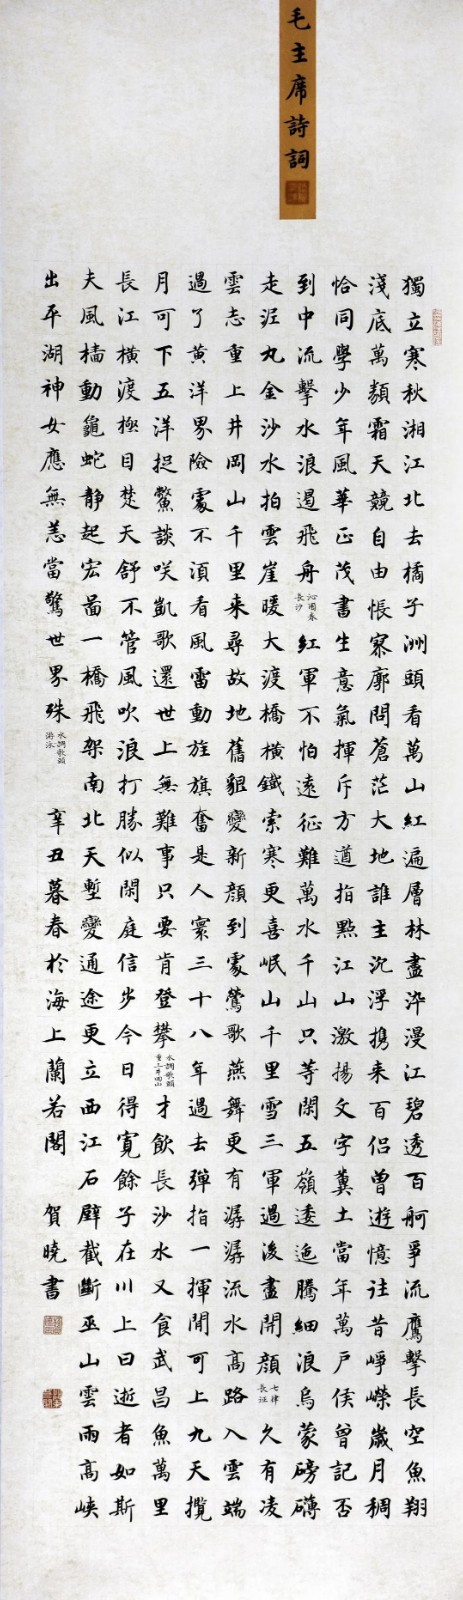 毛主席詩詞
獨立寒秋湘江北去橘子洲頭看萬山紅遍層林盡染漫江碧透百舸爭流鷹擊長空魚翔
淺底萬類霜天競自由悵寥廓問蒼茫大地誰主沉浮携来百侶曾遊憶往昔崢嶸歲月稠
恰同學少年風華正茂書生意氣揮斥方遒指點江山激揚文字糞土當年萬戶侯曾記否
到中流擊水浪遏飛舟 沁園春 長沙 紅軍不怕遠征難萬水千山只等閑五嶺逶迤騰細浪烏蒙磅礴
走泥丸金沙水拍雲崖暖大渡橋橫鐵索寒更喜岷山千里雪三軍過後盡開顏 七律 長征 久有凌
雲志重上井岡山千里来尋故地舊貌變新顏到處鶯歌燕舞更有潺潺流水高路入雲端
過了黃洋界險處不須看風雷動旌旗奮是人寰三十八年過去彈指一揮間可上九天攬
月可下五洋捉鱉談笑凱歌還世上無難事只要肯登攀 水調歌頭 重上井岡山 才飲長沙水又食武昌魚萬里
長江橫渡極目楚天舒不管風吹浪打勝似閑庭信步今日得寬餘子在川上曰逝者如斯
夫風檣動龜蛇靜起宏啚一橋飛架南北天塹變通途更立西江石壁截斷巫山雲雨高峽
出平湖神女應無恙當驚世界殊 水調歌頭 游泳 辛丑暮春於海上蘭若閣 賀曉書